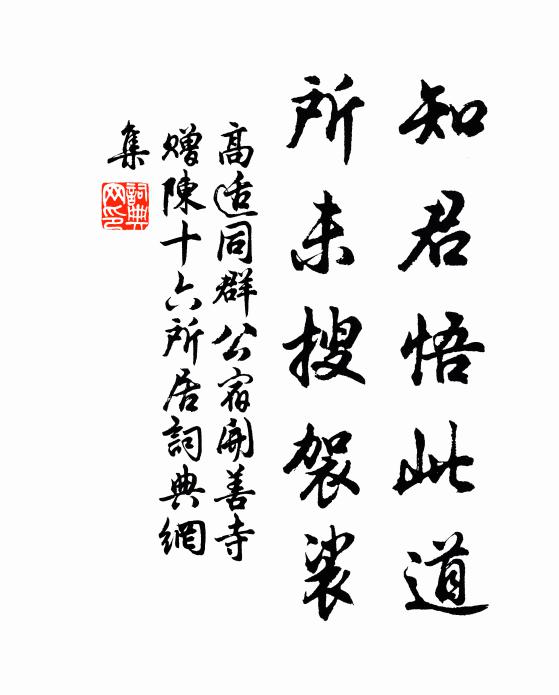 知君悟此道
所未搜袈裟
高适同群公宿開善寺
贈陳十六所居詞典網
集
詞典網印